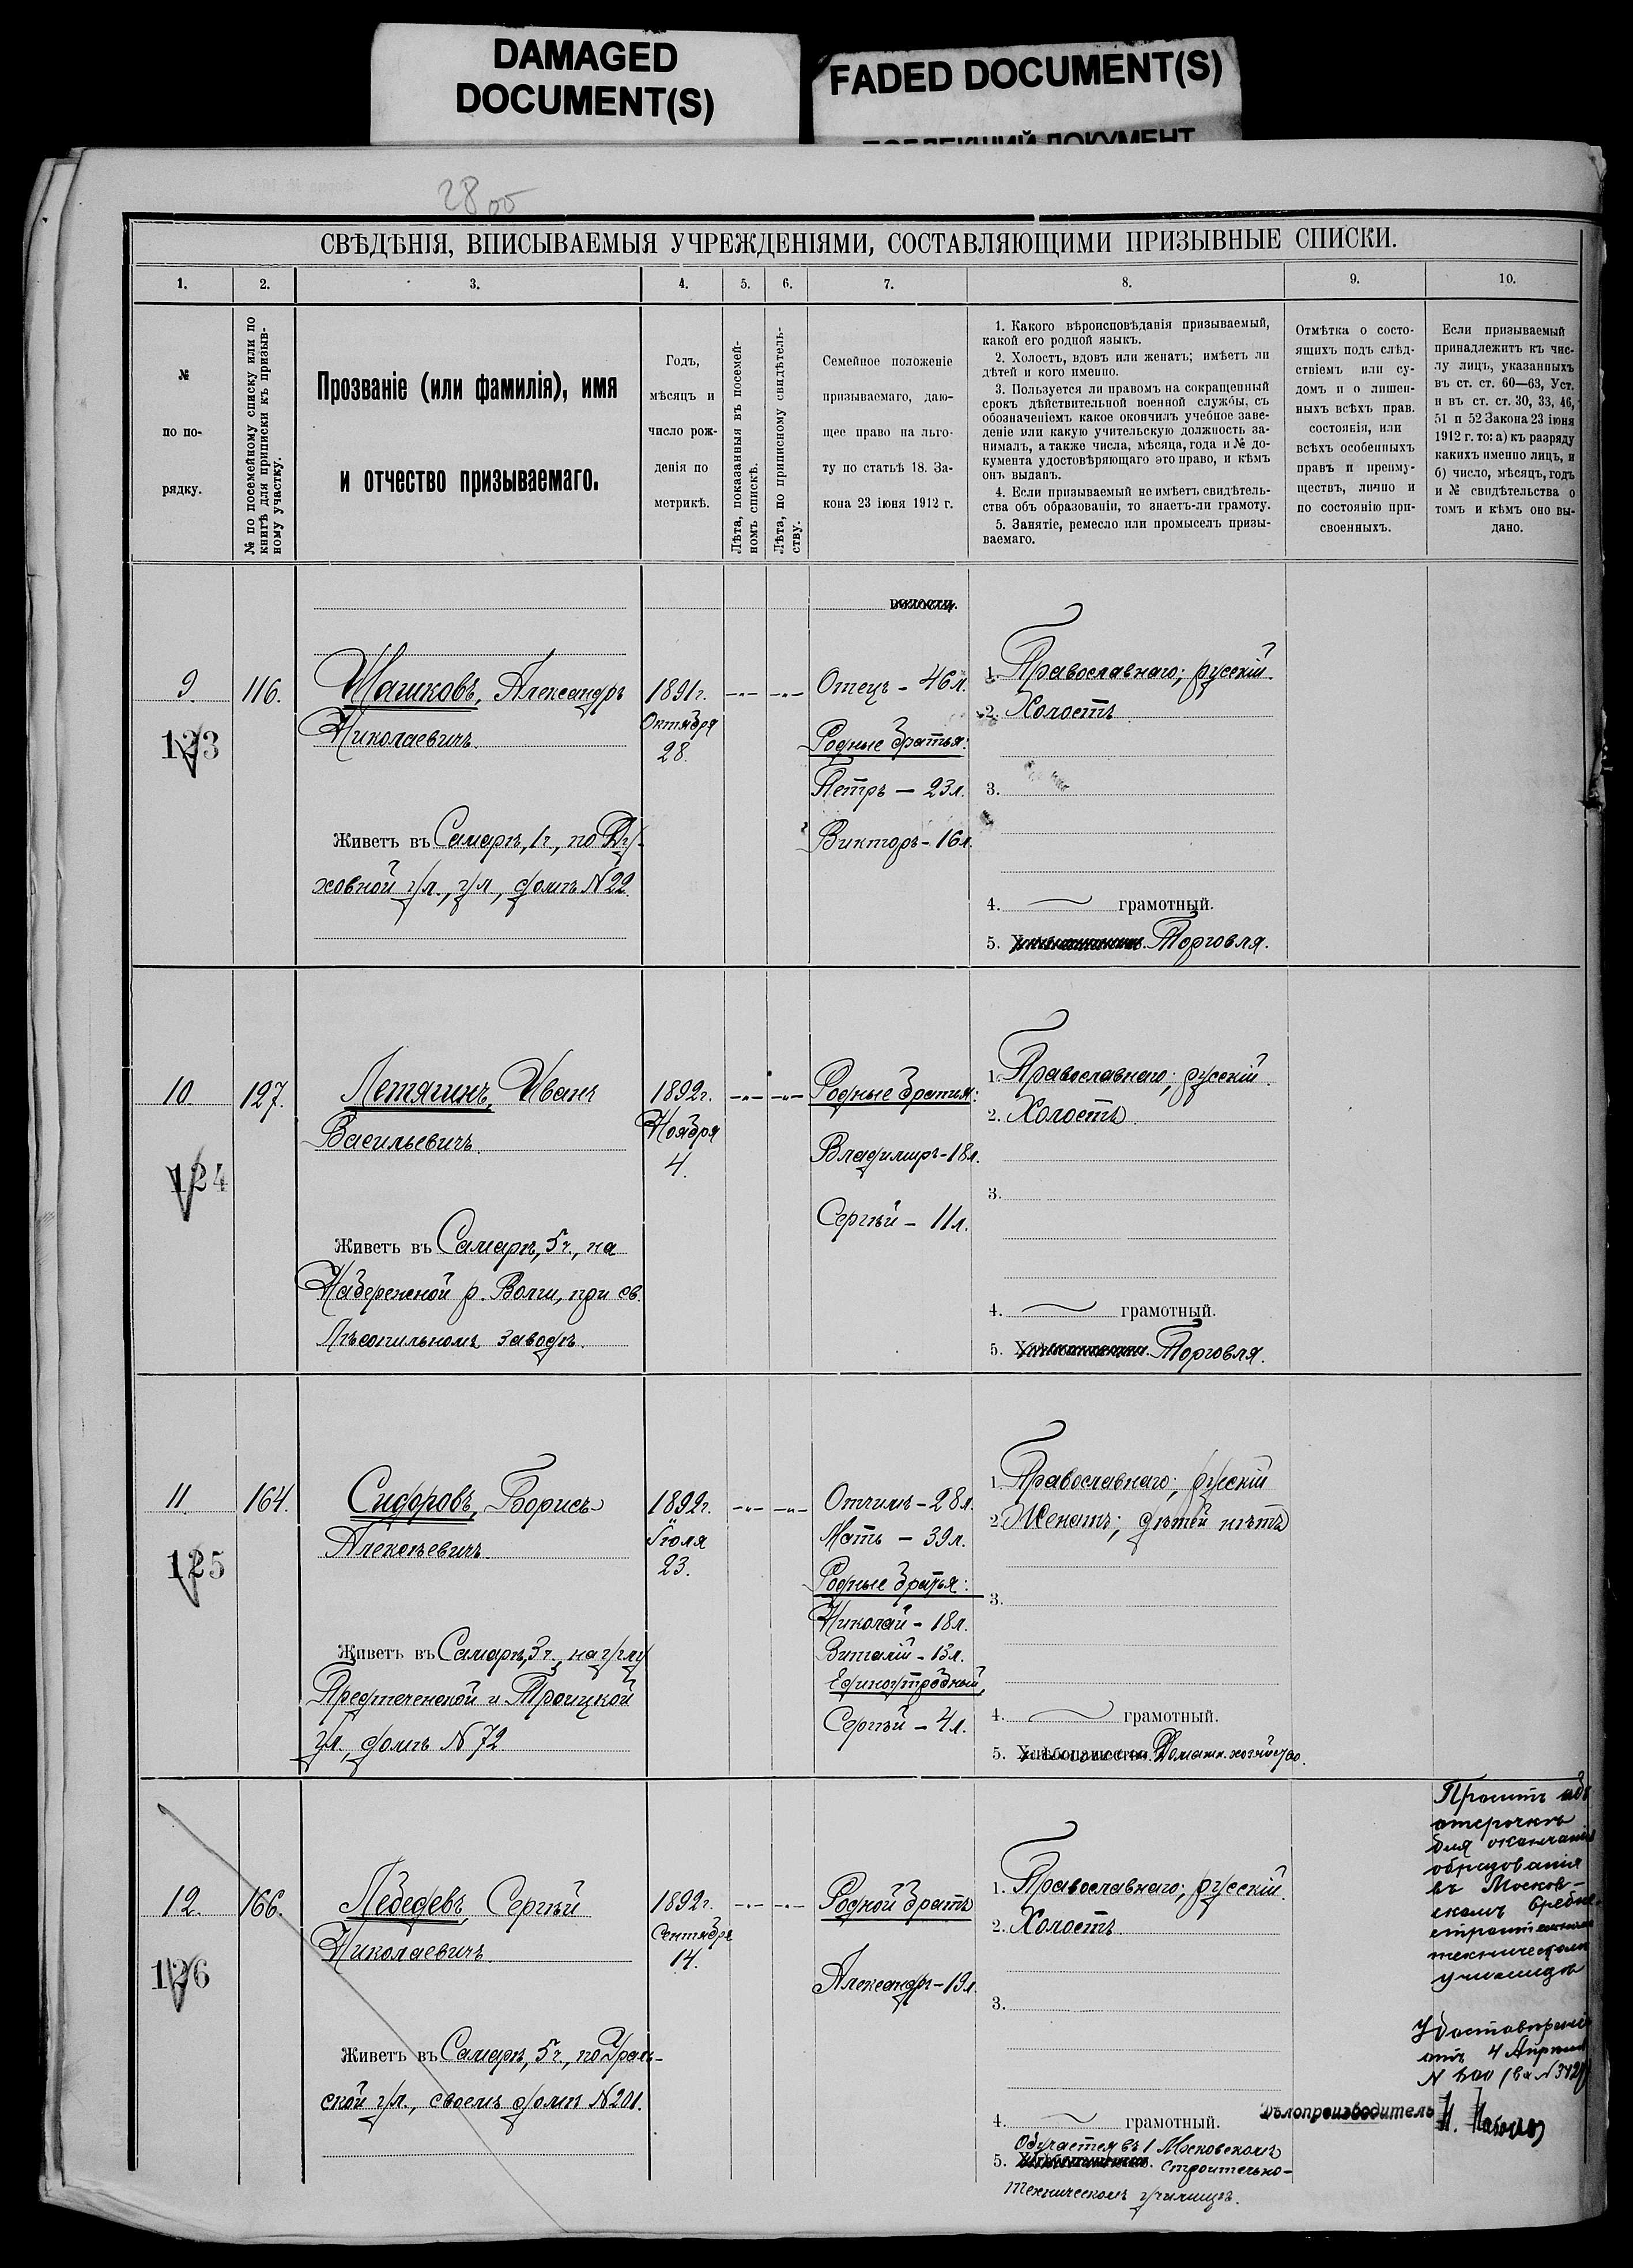 DAMAGED
DOCUMENT(S)
FADED DOCUMENT(S)
28 об
СВѢДѢНІЯ, ВПИСЫВАЕМЫЯ УЧРЕЖДЕНІЯМИ, СОСТАВЛЯЮЩИМИ ПРИЗЫВНЫЕ СПИСКИ.
1.
2.
3.
4.
5.
6.
7.
8.
9.
10.
№
по по-
рядку.
№ по посемейному списку или по
книгѣ для приписки къ призыв-
ному участку.
Прозваніе (или фамилія), имя
и отчество призываемаго.
Годъ,
мѣсяцъ и
число рож-
денія по
метрикѣ.
Лѣта, показанныя въ посемей-
номъ спискѣ.
Лѣта, по приписному свидѣтель-
ству.
Семейное положеніе
призываемаго, даю-
щее право на льго-
ту по статьѣ 18. За-
кона 23 іюня 1912 г.
1. Какого вѣроисповѣданія призываемый,
какой его родной языкъ.
2. Холостъ, вдовъ или женатъ; имѣетъ ли
дѣтей и кого именно.
3. Пользуется ли правомъ на сокращенный
срокъ дѣйствительной военной службы, съ
обозначеніемъ какое окончилъ учебное заве-
деніе или какую учительскую должность за-
нималъ, а также числа, мѣсяца, года и № до-
кумента удостовѣряющаго это право, и кѣмъ
онъ выданъ.
4. Если призываемый не имѣетъ свидѣтель-
ства объ образованіи, то знаетъ-ли грамоту.
5. Занятіе, ремесло или промыселъ призы-
ваемаго.
Отмѣтка о состо-
ящихъ подъ слѣд-
ствіемъ или су-
домъ и о лишен-
ныхъ всѣхъ прав.
состоянія, или
всѣхъ особенныхъ
правъ и преиму-
ществъ, лично и
по состоянію при-
своенныхъ.
Если призываемый
принадлежитъ къ чис-
лу лицъ, указанныхъ
въ ст. ст. 60—63, Уст.
и въ ст. ст. 30, 33, 46,
51 и 52 Закона 23 іюня
1912 г. то: а) къ разряду
какихъ именно лицъ, и
б) число, мѣсяцъ, годъ
и № свидѣтельства о
томъ и кѣмъ оно вы-
дано.
волости.
9
123
116.
Машковъ, Александръ
Николаевичъ.
Живетъ въ Самарѣ, 1ч., по Ду-
ховной ул., домъ № 22.
1891г.
Октября
28.
Отецъ - 46л.
Родные братья:
Петръ — 23л.
Викторъ - 16л.
1. Православнаго; русскій.
2. Холостъ
3.
4. грамотный.
5. Торговля.
10
124
127.
Летягинъ, Иванъ
Васильевичъ.
Живетъ въ Самарѣ, 5ч., на
Набережной р. Волги, при св.
Лѣсопильномъ заводѣ.
1892г.
Ноября
4.
Родные братья:
Владиміръ - 18л.
Сергѣй - 11л.
1. Православнаго; русскій.
2. Холостъ.
3.
4. грамотный.
5. Торговля.
11
125
164.
Сидоровъ, Борисъ
Алексѣевичъ.
Живетъ въ Самарѣ, 3ч., на углу
Предтеченской и Троицкой
ул., домъ № 72
1892г.
Іюля
23.
Отчимъ - 28л.
Мать - 39л.
Родные братья:
Николай - 18л.
Виталій - 13л.
Единоутробный,
Сергѣй - 4л.
1. Православнаго; русскій
2. Женатъ; дѣтей нѣтъ
3.
4. грамотный.
5. Хлѣбопашество. Домашн. хозяйство.
12.
126
166.
Лебедевъ, Сергѣй
Николаевичъ.
Живетъ въ Самарѣ, 5ч., по Ураль-
ской ул., своемъ домѣ № 201.
1892г.
Сентября
14.
Родной братъ
Александръ - 19л.
1. Православнаго; русскій.
2. Холостъ.
3.
4. грамотный.
Обучается въ 1 Московскомъ
5. строительно-
техническомъ училищѣ.
Проситъ объ
отсрочкѣ
для окончанія
образованія
въ Москов-
скомъ средне-
техническомъ
училищѣ
Удостовѣреніе
отъ 4 Апрѣля
Дѣлопроизводитель